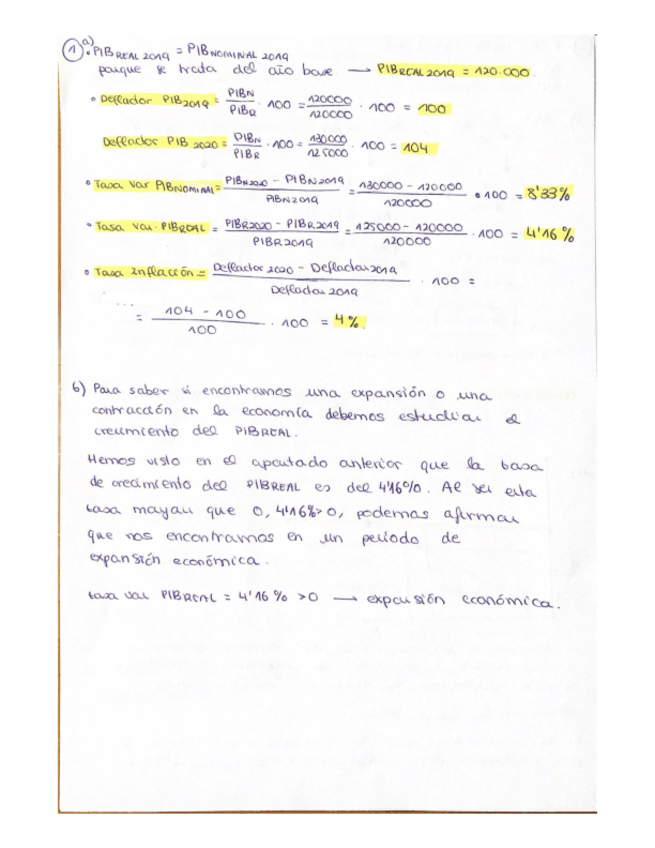 1 a)
• PIB REAL 2019 = PIB NOMINAL 2019
porque se trata del año base → PIB REAL 2019 = 120.000.
• Deflactor PIB2019 = PIBN / PIBR · 100 = 120000 / 120000 · 100 = 100
Deflactor PIB 2020 = PIBN / PIBR · 100 = 130000 / 125000 · 100 = 104
• Tasa Var PIBNOMINAL = PIBN2020 - PIBN2019 / PIBN2019 = 130000 - 120000 / 120000 · 100 = 8'33%
• Tasa Var. PIBREAL = PIBR2020 - PIBR2019 / PIBR2019 = 125000 - 120000 / 120000 · 100 = 4'16%
• Tasa Inflacción = Deflactor 2020 - Deflactor 2019 / Deflactor 2019 · 100 =
= 104 - 100 / 100 · 100 = 4%.
b) Para saber si encontramos una expansión o una
contracción en la economía debemos estudiar el
crecimiento del PIBREAL.
Hemos visto en el apartado anterior que la tasa
de crecimiento del PIBREAL es del 4'16%. Al ser esta
tasa mayor que 0, 4'16%>0, podemos afirmar
que nos encontramos en un periodo de
expansión económica.
tasa var PIBREAL = 4'16% >0 → expansión económica.